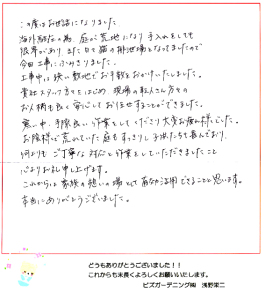 この度はお世話になりました。
海外駐在の為、庭が荒地になり手入れをしても
限界があり、また日々猫の排泄場となってましたので
今回工事にふみきりました。
工事中は狭い敷地でお手数をおかけいたしました。
貴社スタッフ方々をはじめ、現場の職人さん方々の
お人柄も良く安心してお任せすることができました。
寒い中、手際良い作業をしてくださり大変お疲れ様でした。
お陰様で荒れていた庭もすっきりし子供たちも喜んでおり、
何よりもご丁寧な対応と作業をしていただきましたこと
心よりお礼申し上げます。
これからは家族の憩いの場として有効活用できることと思います。
本当にありがとうございました。
どうもありがとうございました!!
これからも末長くよろしくお願いいたします。
ビズガーデニング㈱ 浅野栄二